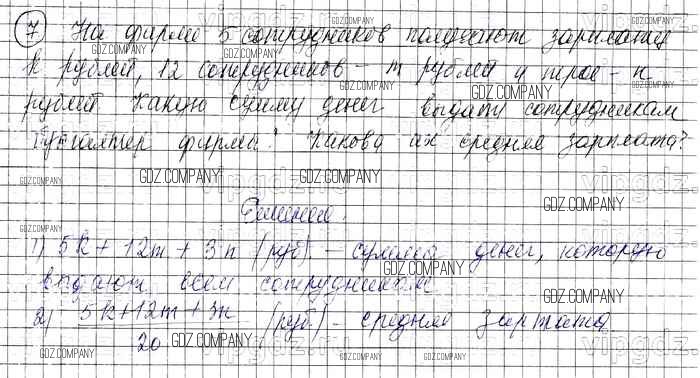 7 На фирме 5 сотрудников получают зарплату
k рублей, 12 сотрудников – m рублей и трое – n
рублей. Какую сумму денег выдаст сотрудникам
бухгалтер фирмы? Какова их средняя зарплата?
Решение.
1) 5k + 12m + 3n (руб) – сумма денег, которую
выдают всем сотрудникам
2) 5k+12m+3n / 20 (руб) – средняя зарплата.
GDZ.COMPANY
vipgdz.ru